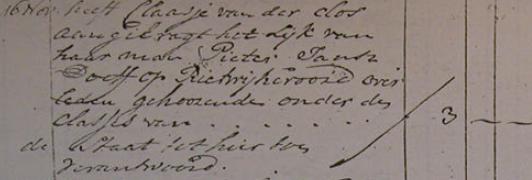 16 Nov. heeft Claasje van der clos
aangebragt het Lijk van
haar man Pieter Jansz
Doeff op Rietwijkeroord over
leden gehoorende onder de
classis van . . . . . . . 3 –
de Staat tot hier toe
verantwoord.